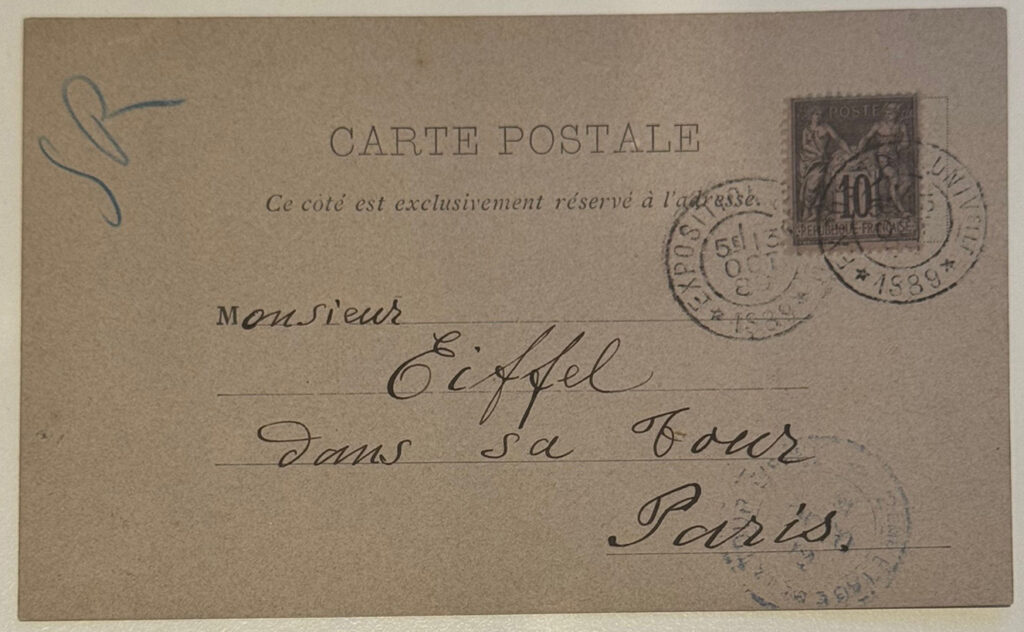 SR
CARTE POSTALE
Ce côté est exclusivement réservé à l'adresse.
POSTE
10
REPUBLIQUE FRANÇAISE
EXPOSITION
5E 13
OCT
89
* 1889 *
UNIVLLE
* 1889 *
Monsieur
Eiffel
dans sa Tour
Paris.